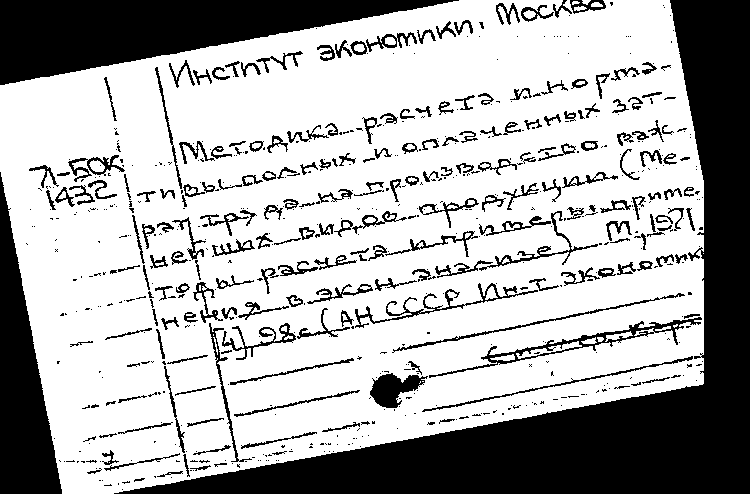 Институт экономики. Москва.
71-БОК
1432
Методика расчета и норма-
тивы полных и оплаченных зат-
рат труда на производство важ-
нейших видов продукции. (Ме-
тоды расчета и примеры приме-
нения в экон анализе) М., 1971.
[4], 98с (АН СССР Ин-т экономики
См. след. карт